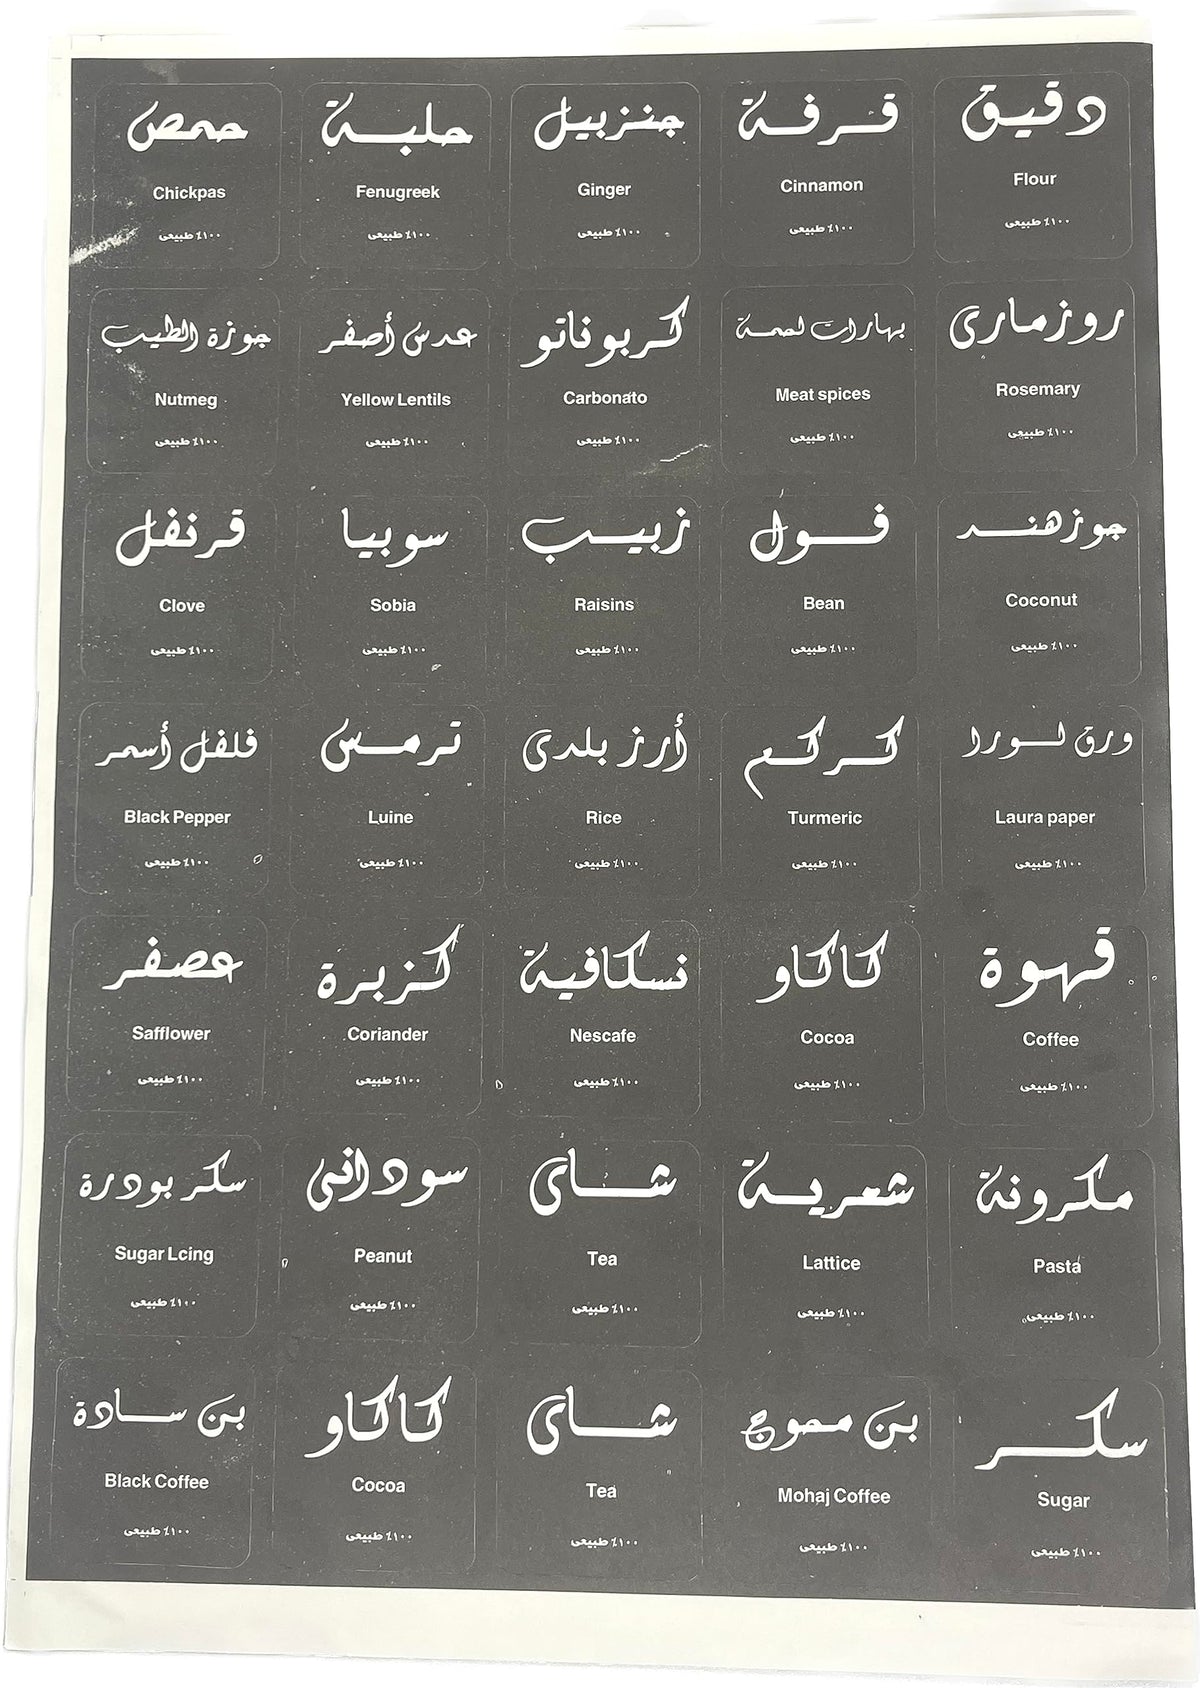 دقيق
Flour
١٠٠٪ طبيعى
قرفة
Cinnamon
١٠٠٪ طبيعى
جنزبيل
Ginger
١٠٠٪ طبيعى
حلبة
Fenugreek
١٠٠٪ طبيعى
حمص
Chickpas
١٠٠٪ طبيعى
روزمارى
Rosemary
١٠٠٪ طبيعى
بهارات لحمة
Meat spices
١٠٠٪ طبيعى
كربوناتو
Carbonato
١٠٠٪ طبيعى
عدس أصفر
Yellow Lentils
١٠٠٪ طبيعى
جوزة الطيب
Nutmeg
١٠٠٪ طبيعى
جوزهند
Coconut
١٠٠٪ طبيعى
فول
Bean
١٠٠٪ طبيعى
زبيب
Raisins
١٠٠٪ طبيعى
سوبيا
Sobia
١٠٠٪ طبيعى
قرنفل
Clove
١٠٠٪ طبيعى
ورق لورا
Laura paper
١٠٠٪ طبيعى
كركم
Turmeric
١٠٠٪ طبيعى
أرز بلدى
Rice
١٠٠٪ طبيعى
ترمس
Luine
١٠٠٪ طبيعى
فلفل أسمر
Black Pepper
١٠٠٪ طبيعى
قهوة
Coffee
١٠٠٪ طبيعى
كاكاو
Cocoa
١٠٠٪ طبيعى
نسكافية
Nescafe
١٠٠٪ طبيعى
كزبرة
Coriander
١٠٠٪ طبيعى
عصفر
Safflower
١٠٠٪ طبيعى
مكرونة
Pasta
١٠٠٪ طبيعى
شعرية
Lattice
١٠٠٪ طبيعى
شاى
Tea
١٠٠٪ طبيعى
سودانى
Peanut
١٠٠٪ طبيعى
سكر بودرة
Sugar Lcing
١٠٠٪ طبيعى
سكر
Sugar
١٠٠٪ طبيعى
بن محوج
Mohaj Coffee
١٠٠٪ طبيعى
شاى
Tea
١٠٠٪ طبيعى
كاكاو
Cocoa
١٠٠٪ طبيعى
بن سادة
Black Coffee
١٠٠٪ طبيعى